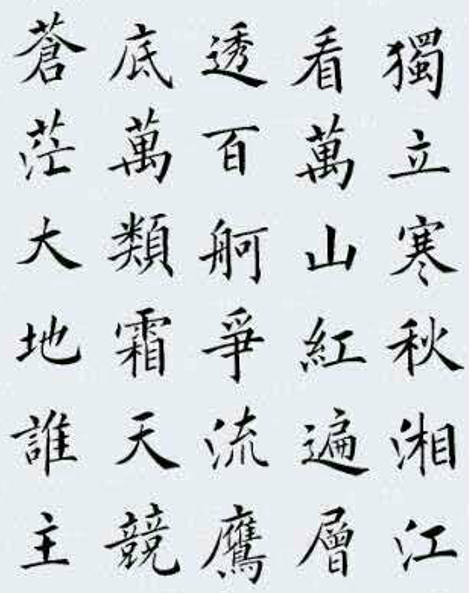 獨立寒秋湘江
看萬山紅遍層
透百舸爭流鷹
底萬類霜天競
蒼茫大地誰主